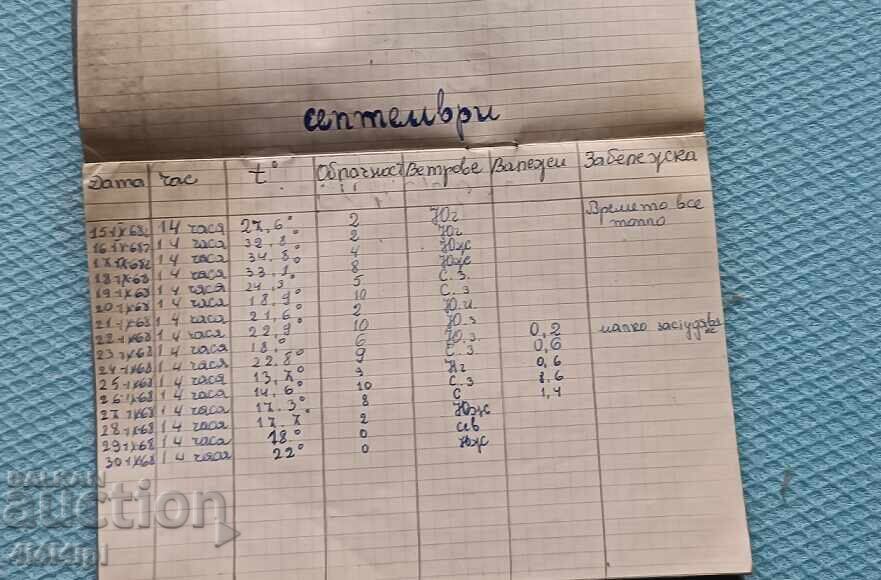 септември
Дата час t° Облачност Ветрове Валежи Забележка
15-IX-68 14 часа 27,6° 2 Юг Времето все
16-IX-68 14 часа 32,8° 2 Юг топло
17-IX-68 14 часа 34,8° 4 Юж
18-IX-68 14 часа 33,1° 8 Юж
19-IX-68 14 часа 24,3° 5 С.З.
20-IX-68 14 часа 18,9° 10 С.З
21-IX-68 14 часа 21,6° 2 Ю.И.
22-IX-68 14 часа 22,9° 10 Ю.З 0,2 малко
23-IX-68 14 часа 18,° 6 Ю.З. 0,6
24-IX-68 14 часа 22.8° 9 С.З
25-IX-68 14 часа 13,7° 9 0,6
26-IX-68 14 часа 14,6° 10 С.З 1,4
27-IX-68 14 часа 17.3° 8 С
28-IX-68 14 часа 17.7° 2 Юж
29-IX-68 14 часа 18° 0 ив
30-IX-68 14 часа 22° 0 Юж
BALKAN
auction